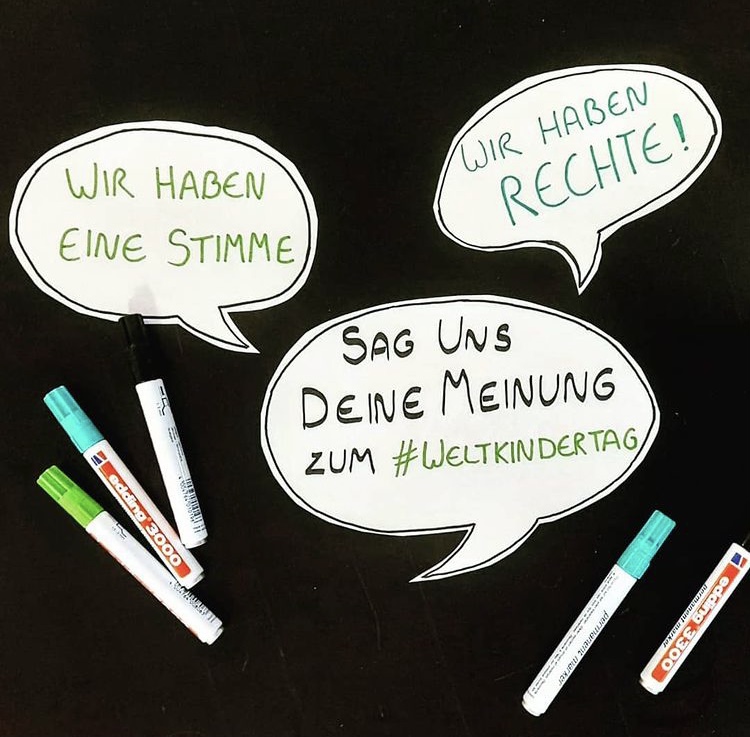 WIR HABEN
EINE STIMME
WIR HABEN
RECHTE!
SAG UNS
DEINE MEINUNG
ZUM #WELTKINDERTAG
edding 3000
permanent marker
edding 3300
permanent marker